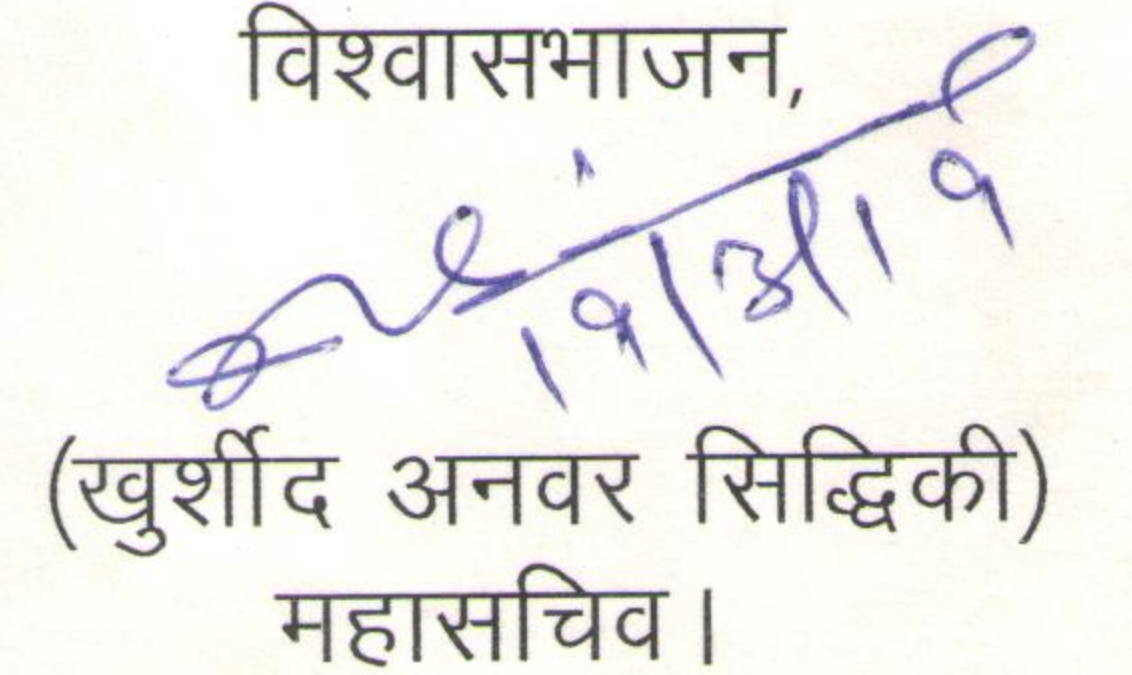 विश्वासभाजन,
(खुर्शीद अनवर सिद्धिकी)
महासचिव।